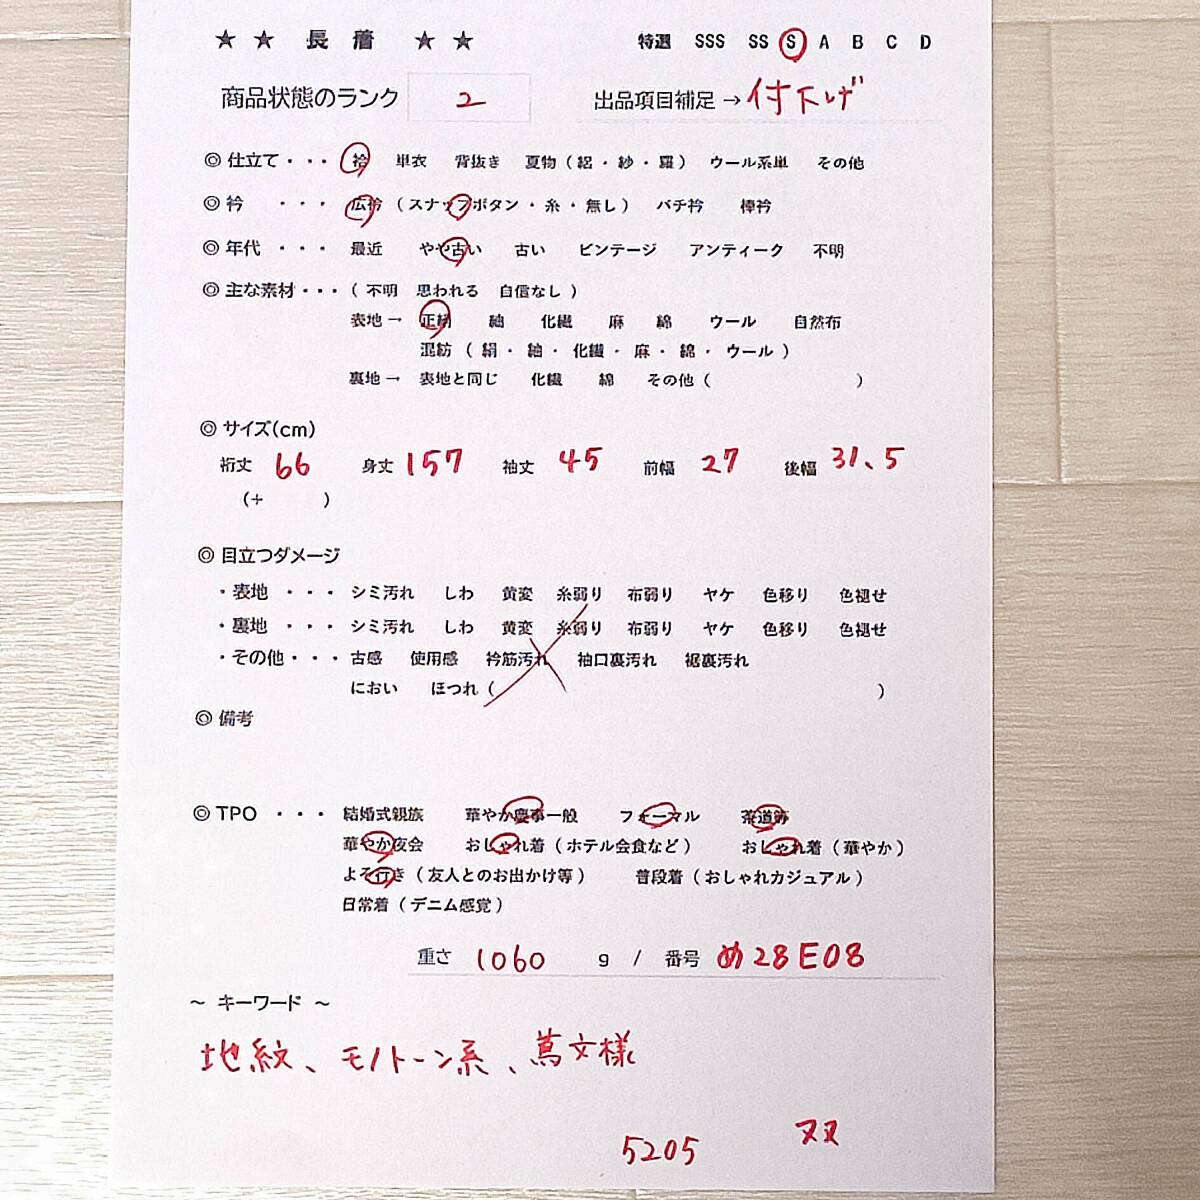 ★ ★ 長 着 ★ ★ 特選 SSS SS S A B C D
商品状態のランク 2 出品項目補足 → 付下げ
◎ 仕立て・・・ 袷 単衣 背抜き 夏物（絽・紗・羅） ウール系単 その他
◎ 衿 ・・・ 広衿（スナップボタン・糸・無し） バチ衿 棒衿
◎ 年代・・・ 最近 やや古い 古い ビンテージ アンティーク 不明
◎ 主な素材・・・（不明 思われる 自信なし）
表地→ 正絹 紬 化繊 麻 綿 ウール 自然布
混紡（絹・紬・化繊・麻・綿・ウール）
裏地→ 表地と同じ 化繊 綿 その他（ ）
◎ サイズ(cm)
裄丈 66 身丈 157 袖丈 45 前幅 27 後幅 31、5
（+ ）
◎ 目立つダメージ
・表地・・・ シミ汚れ しわ 黄変 糸弱り 布弱り ヤケ 色移り 色褪せ
・裏地・・・ シミ汚れ しわ 黄変 糸弱り 布弱り ヤケ 色移り 色褪せ
・その他・・・ 古感 使用感 衿筋汚れ 袖口裏汚れ 裾裏汚れ
におい ほつれ（ ）
◎ 備考
◎ TPO ・・・ 結婚式親族 華やか慶事一般 フォーマル 茶道等
華やか夜会 おしゃれ着（ホテル会食など） おしゃれ着（華やか）
よそ行き（友人とのお出かけ等） 普段着（おしゃれカジュアル）
日常着（デニム感覚）
重さ 1060 g / 番号 め28E08
～ キーワード ～
地紋、モノトーン系、蔦文様
5205 ヌヌ